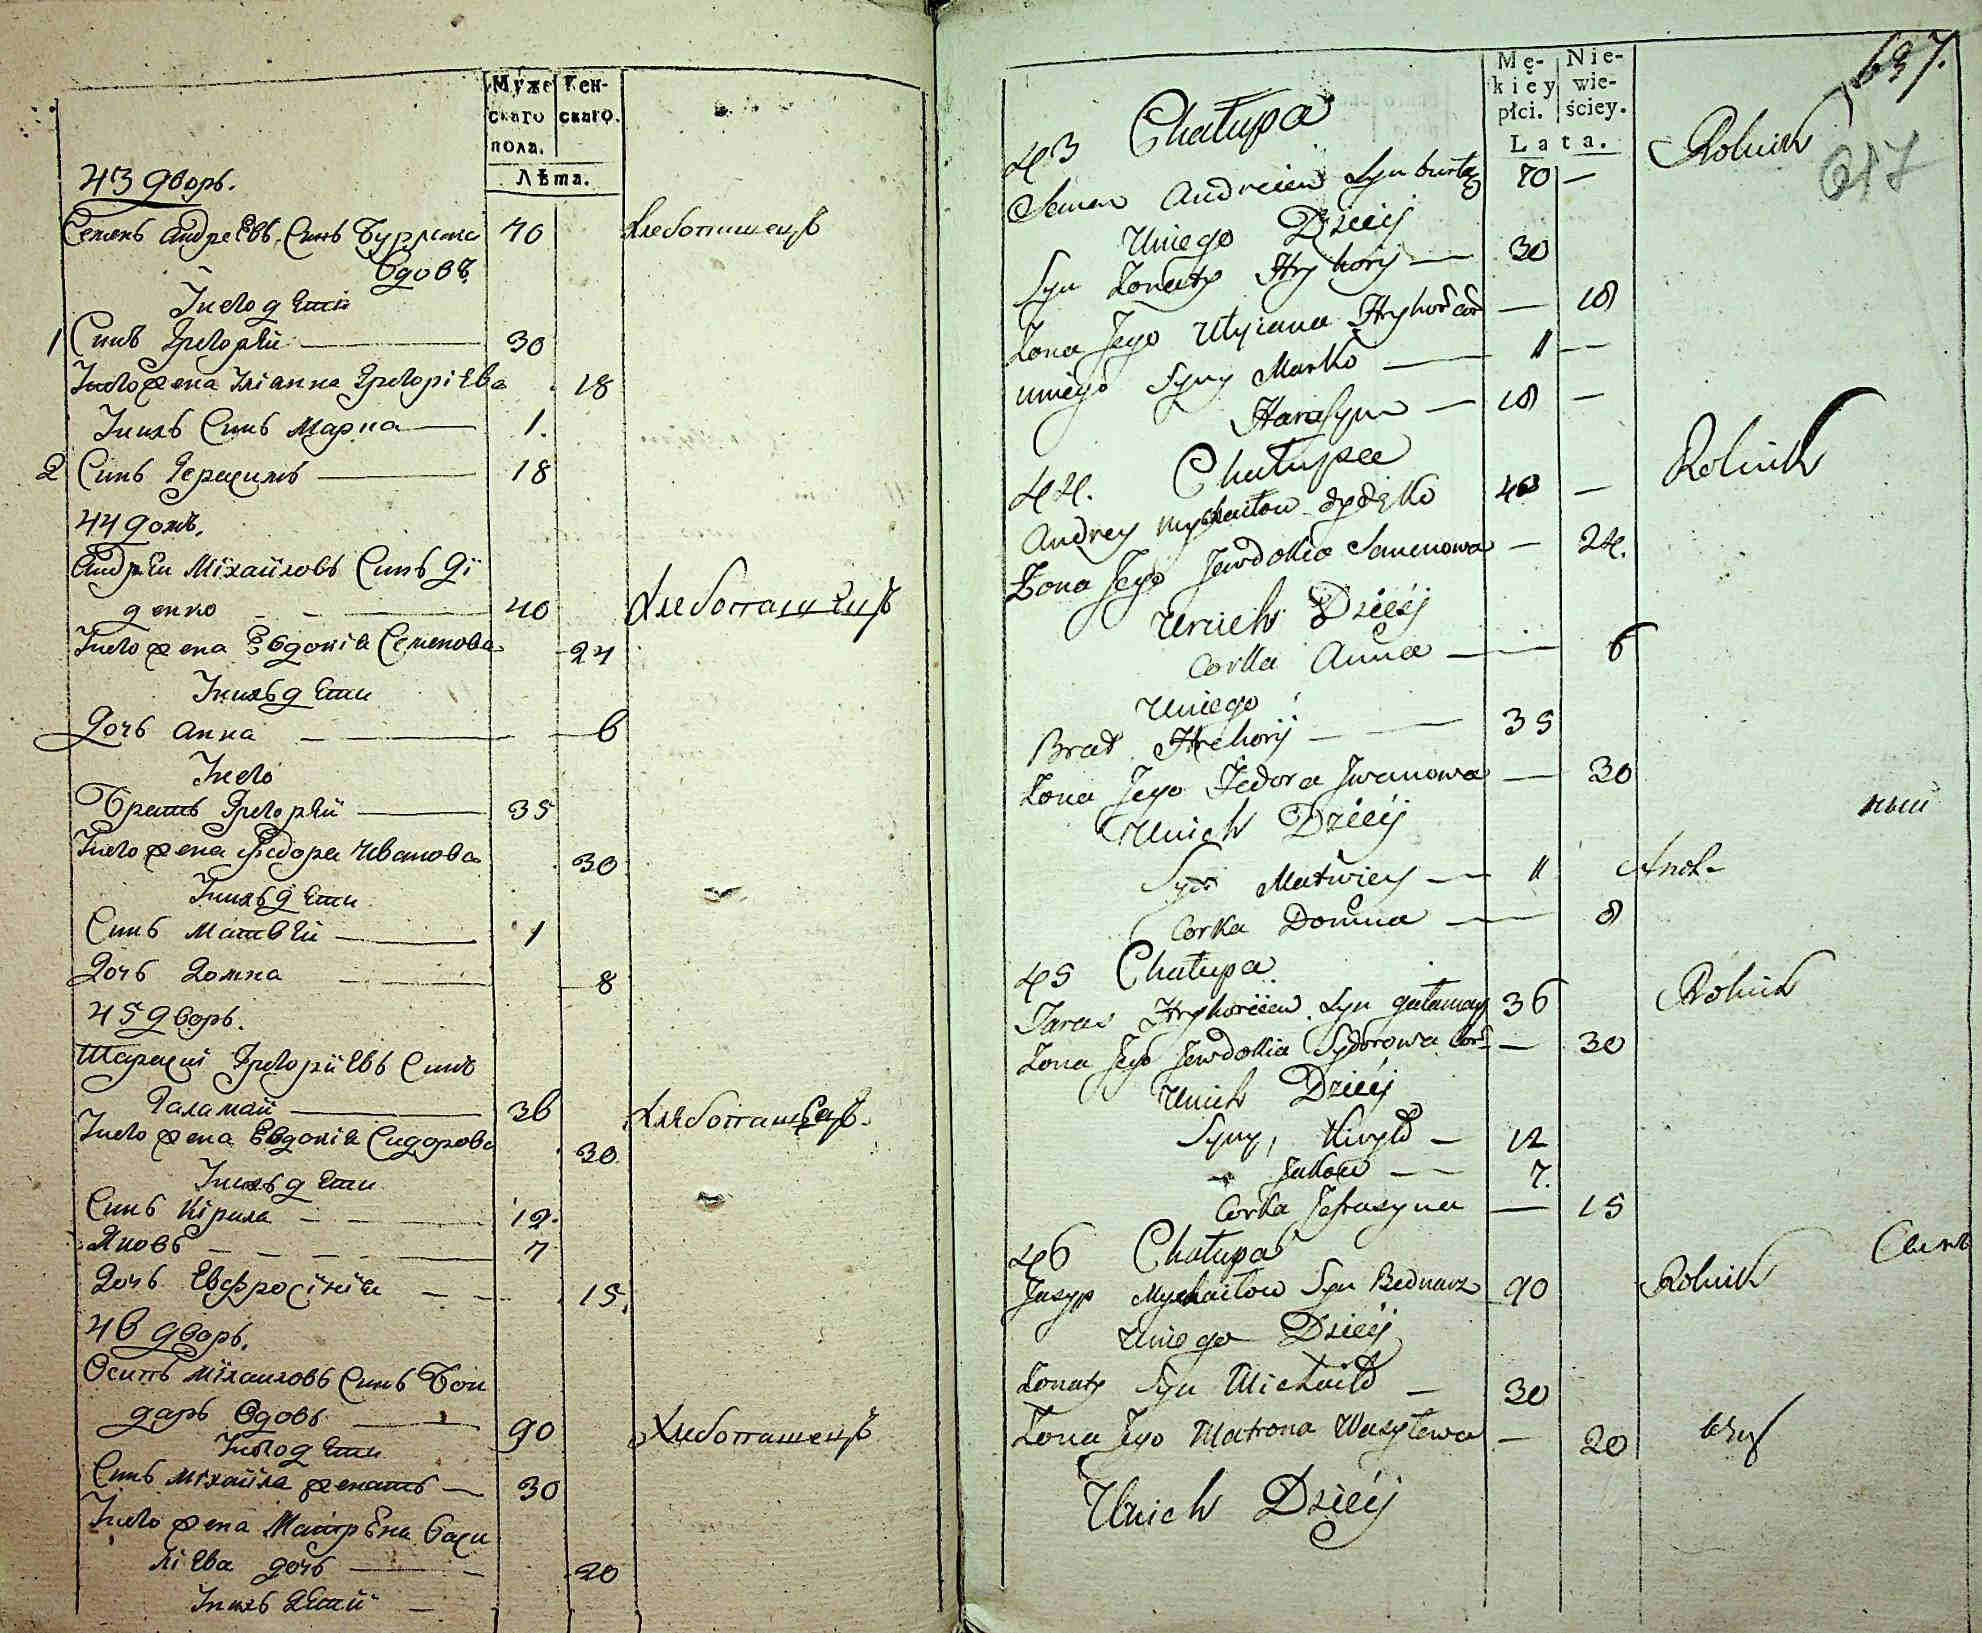 Муже Жен-
скаго скаго.
пола.
Лѣта.
43 дворъ.
Семенъ Андреевъ Синъ Бурлака 70 Хлебопашецъ
вдовъ
У него дѣти
1 Синъ Григорѣй 30
У него жена Улiанна Григорiева 18
У нихъ Синъ Марко 1.
2 Синъ Герасимъ 18
44 домъ.
Андрѣи Мiхайловъ Синъ Дi
денко 40 Хлебопашецъ
У него жена Евдокiя Семенова 24
У нихъ дѣти
Дочь Анна 6
У него
Братъ Григорѣй 35
У него жена Федора Иванова 30
У нихъ дѣти
Синъ Матвѣй 1
Дочь Домна 8
45 дворъ.
Тарасiй Григорiевъ Синъ
Галамай 36 Хлебопашецъ.
У него жена Евдокiя Сидорова 30
У нихъ дѣти
Синъ Кiрила 12.
Яковъ 7
Дочь Евфросiнiя 15.
46 дворъ.
Осипъ Мiхаиловъ Синъ Бон
дарь Вдовъ 90 Хлебопашецъ
У него дѣти
Синъ Мiхайла женатъ 30
У него жена Матрѣна Васи
лiева дочь 20
У нихъ Дѣтий
637.
617
Mę- Nie-
kiéy wie-
płci. ściey.
Lata.
43 Chałupa Rolnik
Semen Andreiew Syn burłak 70 —
Uniego Dzieći
Syn Żonaty Hryhory — 30
Żona Jego Ulyiana Hryhor Cor — 18
uniego Syny Marko — 11 —
Harasym — 18 —
44. Chałupa Rolnik
Andrey Mychaiłow dydęko 40 —
Żona Jego Jewdokia Semenowa — 24.
Unich Dzieći
Corka Anna — 6
Uniego
Brat Hrehory — 35
Żona Jego Fedora Iwanowa — 30
Unich Dzieći
Syn Matwiey — 11
Corka Domna — 8
45 Chałupa Rolnik
Taras Hryhoriiew Syn gałamay 36
Żona Jego Jewdokia Sydorowa Cor — 30
Unich Dzieći
Syny, Kiryło — 12
Jakow — 7.
Corka Jefrasyna — 15
46 Chałupa
Jusyp Mychaiłow Syn Bednarz 90 Rolnik
Uniego Dzieći
Żonaty Syn Michaiło — 30
Żona Jego Matrona Wasylewa — 20
Unich Dzieći